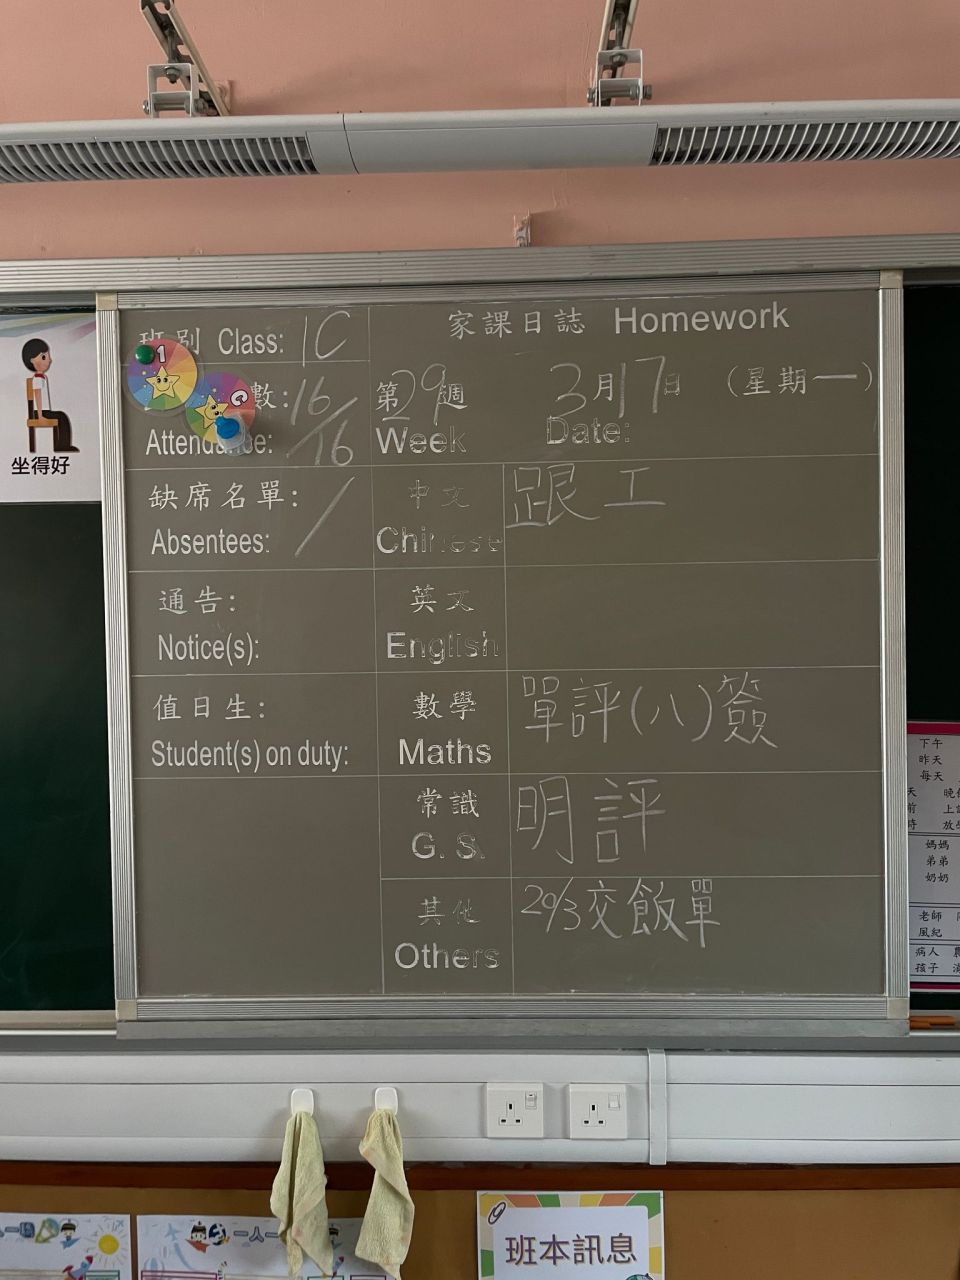 班別 Class: 1C
家課日誌 Homework
數: 16/16
Attendance:
第29週
Week
3月17日 (星期一)
Date:
缺席名單: /
Absentees:
中文
Chinese
跟工
通告:
Notice(s):
英文
English
值日生:
Student(s) on duty:
數學
Maths
單評(八)簽
常識
G. S.
明評
其他
Others
29/3交飯單
坐得好
1
C
下午
昨天
每天
媽媽
弟弟
奶奶
老師
風紀
病人
孩子
班本訊息